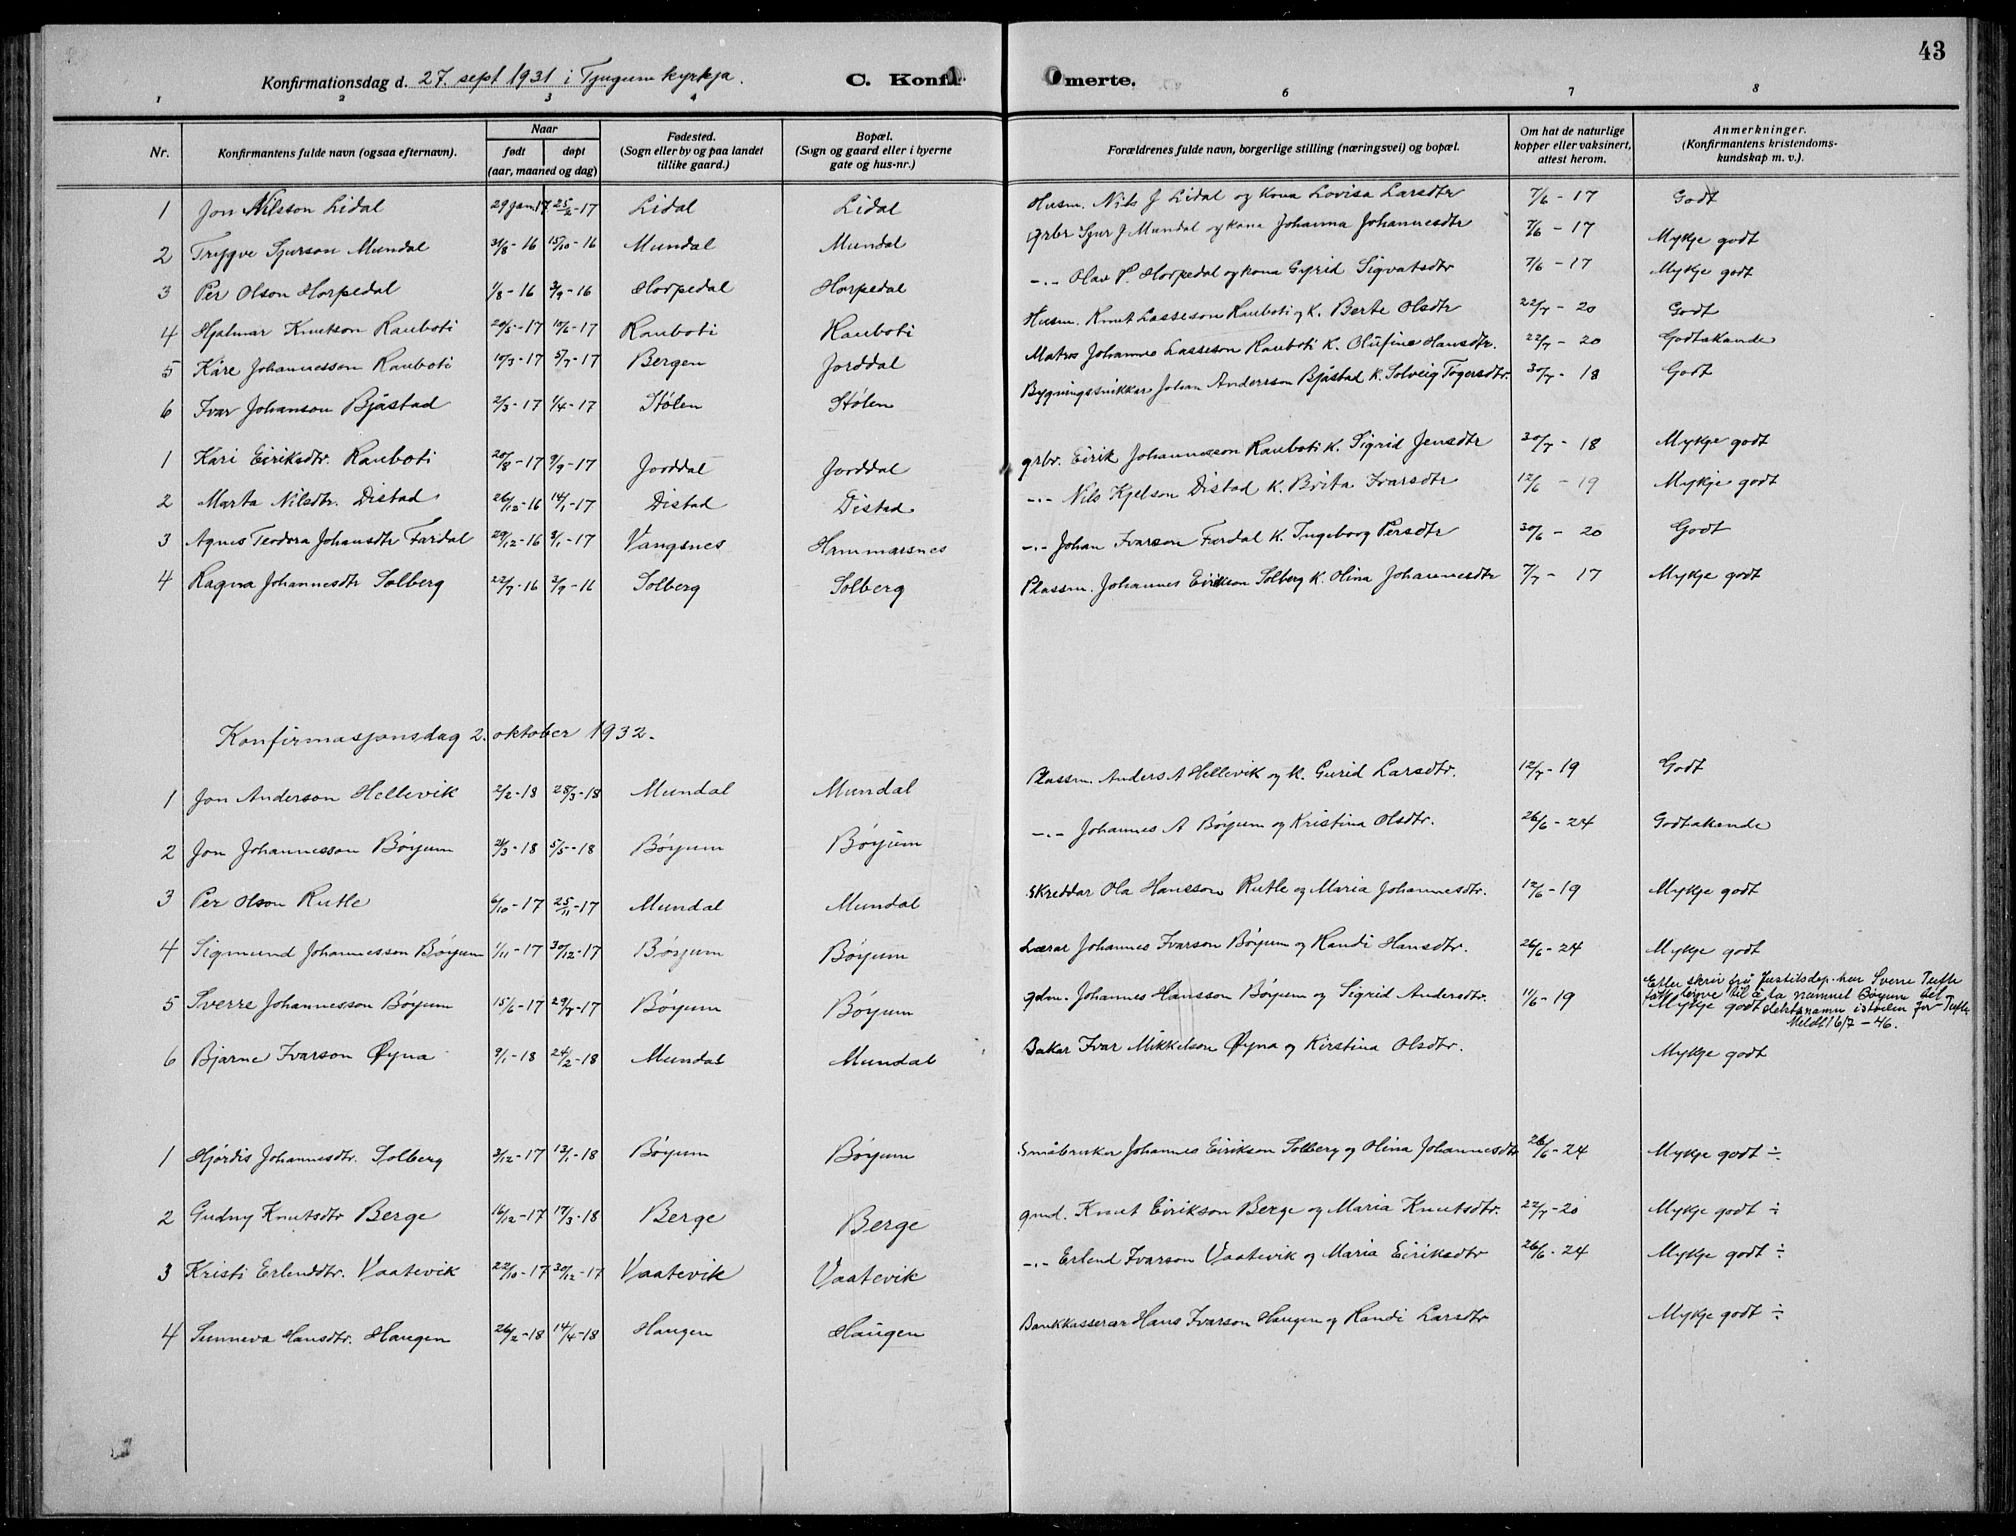 43
Konfirmationsdag d. 27. sept 1931 i Tjugum kyrkja. C. Konfirmerte.
1 2 3 4 6 7 8
Nr. Konfirmantens fulde navn (ogsaa efternavn). Naar født døpt (aar, maaned og dag) Fødested. (Sogn eller by og paa landet tillike gaard.) Bopæl. (Sogn og gaard eller i byerne gate og hus-nr.) Forældrenes fulde navn, borgerlige stilling (næringsvei) og bopæl. Om hat de naturlige kopper eller vaksinert, attest herom. Anmerkninger. (Konfirmantens kristendoms-kundskap m. v.).
1 Jon Nilsson Lidal 29 jan 17 25/2-17 Lidal Lidal Husm. Nils J Lidal og kona Lovisa Larsdtr 7/6 - 17 Godt
2 Trygve Sjurson Mundal 31/8-16 15/10-16 Mundal Mundal grbr Sjur J Mundal og kona Johanna Johannesdtr 7/6 - 17 Mykje godt
3 Per Olson Horpedal 1/8-16 3/9-16 Horpedal Horpedal -.- Olav P. Horpedal og kona Gyrid Sigvatsdtr 7/6 - 17 Mykje godt
4 Hjalmar Knutson Rauboti 20/5-17 10/6-17 Rauboti Rauboti Husm. Knut Lasseson Rauboti og k. Berte Olsdtr 22/7 - 20 Godt
5 Kåre Johannesson Rauboti 10/3-17 5/7-17 Bergen Jorddal Matros Johannes Lasseson Rauboti k. Olufine Hansdtr. 22/7 - 20 Godtakande
6 Ivar Johanson Bjåstad 2/3-17 1/4-17 Stølen Stølen Bygningssnikkar Johan Andersson Bjåstad k. Solveig Togersdtr. 30/7 - 18 Godt
1 Kari Eiriksdtr. Rauboti 20/8-17 9/9-17 Jorddal Jorddal grbr. Eirik Johannesson Rauboti k. Sigrid Jensdtr 30/7 - 18 Mykje godt
2 Marta Nilsdtr. Distad 26/12-16 14/1-17 Distad Distad -.- Nils Kjelson Distad k. Brita Ivarsdtr 12/6 - 19 Mykje godt
3 Agnes Teodora Johansdtr Fardal 29/12-16 9/1-17 Vangsnes Hammarsnes -.- Johan Ivarson Fardal k. Ingeborg Persdtr 30/6 - 20 Godt
4 Ragna Johannesdtr Solberg 22/7-16 3/9-16 Solberg Solberg Plassm. Johannes Eirikson Solberg k. Olina Johannesdtr 7/7 - 17 Mykje godt
Konfirmasjonsdag 2. oktober 1932.
1 Jon Anderson Hellevik 2/2-18 28/3-18 Mundal Mundal Plassm. Anders A Hellevik og k. Gurid Larsdtr. 12/7-19 Godt
2 Jon Johannesson Bøyum 21/3-18 5/5-18 Bøyum Bøyum -.- Johannes A Bøyum og Kristina Olsdtr. 26/6-24 Godtakende
3 Per Olson Rutle 6/10-17 25/11-17 Mundal Mundal Skreddar Ola Hansson Rutle og Maria Johannesdtr. 12/6-19 Mykje godt
4 Sigmund Johannesson Bøyum 1/11-17 30/12-17 Bøyum Bøyum Lærar Johannes Ivarson Bøyum og Randi Hansdtr. 26/6-24 Mykje godt
5 Sverre Johannesson Bøyum 15/6-17 29/7-17 Bøyum Bøyum gdm. Johannes Hansson Bøyum og Sigrid Andersdtr. 11/6-19 Mykje godt
Etter skriv frå Justitsdep. har Sverre Tufte
fått løyve til å ta namnet Bøyum til
slektsnamn istaden for Tufte
Meldt 16/7-46.
6 Bjarne Ivarson Øyna 9/1-18 24/2-18 Mundal Mundal Bakar Ivar Mikkelson Øyna og Kirstina Olsdtr. Mykje godt
1 Hjørdis Johannesdtr. Solberg 3/12-17 13/1-18 Bøyum Bøyum Småbruker Johannes Eirikson Solberg og Olina Johannesdtr 26/6-24 Mykje godt ÷
2 Gudny Knutsdtr Berge 16/12-17 17/3-18 Berge Berge gmd. Knut Eirikson Berge og Maria Knutsdtr. 22/7-20 Mykje godt ÷
3 Kristi Erlenddtr. Vaatevik 22/10-17 30/12-17 Vaatevik Vaatevik -.- Erlend Ivarson Vaatevik og Maria Eiriksdtr 26/6-24 Mykje godt ÷
4 Sunneva Hansdtr. Haugen 26/2-18 14/4-18 Haugen Haugen Bankkasserar Hans Ivarson Haugen og Randi Larsdtr Mykje godt ÷